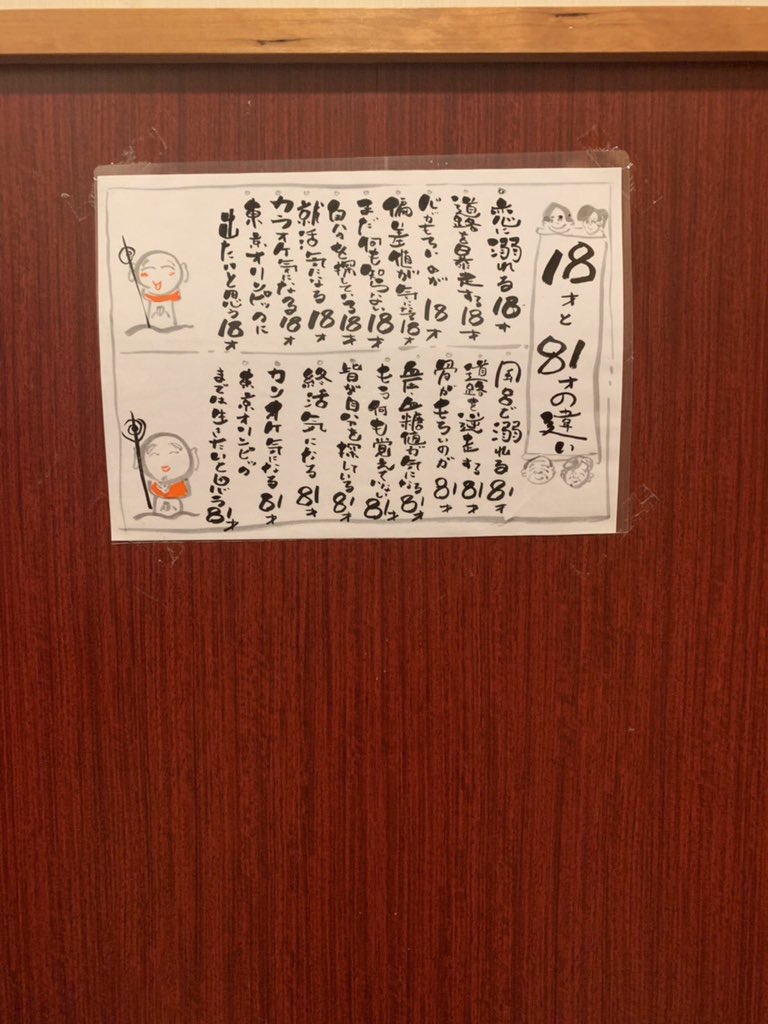 18才と81才の違い
恋に溺れる18才
道路を暴走する18才
心がもろいのが18才
偏差値が気になる18才
まだ何も知らない18才
自分を探している18才
就活気になる18才
カラオケ気になる18才
東京オリンピックに
出たいと思う18才
風呂で溺れる81才
道路を逆走する81才
骨がもろいのが81才
血圧・血糖値が気になる81才
もう何も覚えていない81才
皆が自分を探している81才
終活気になる81才
カンオケ気になる81才
東京オリンピック
までは生きたいと思う81才